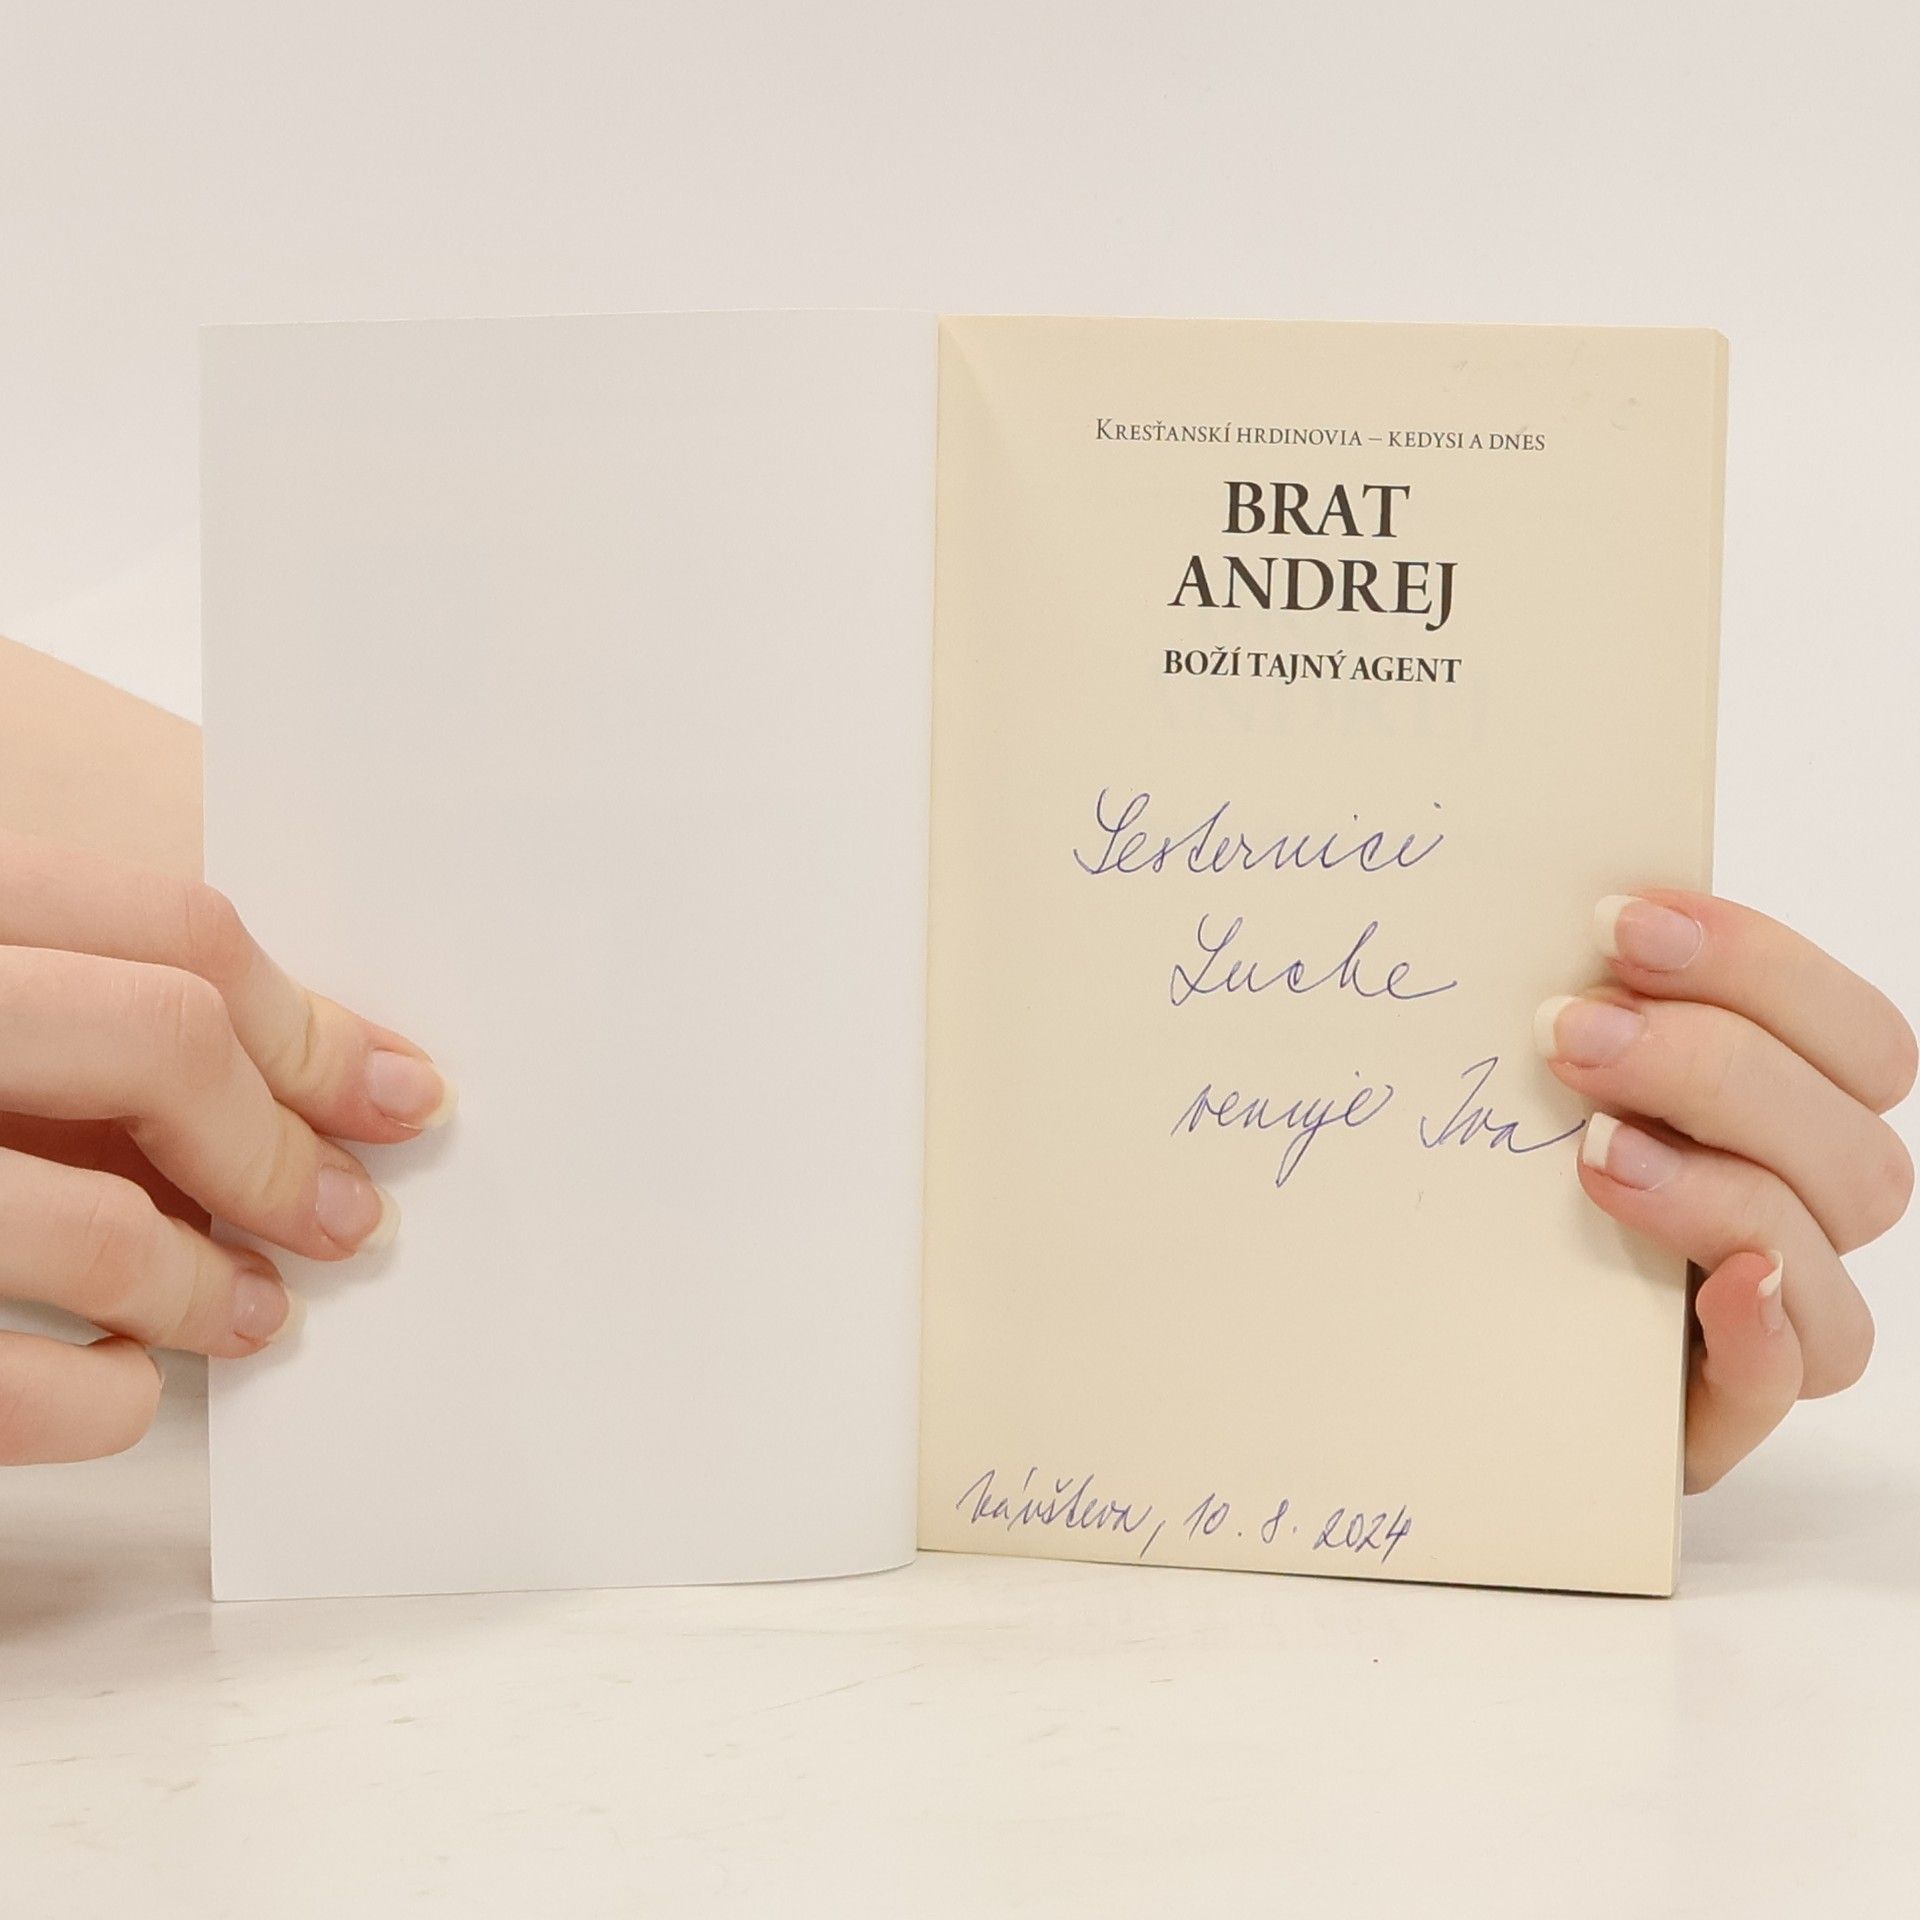 KRESŤANSKÍ HRDINOVIA – KEDYSI A DNES
BRAT
ANDREJ
BOŽÍ TAJNÝ AGENT
Sesternici
Lucke
venuje Iva
10. 8. 2024